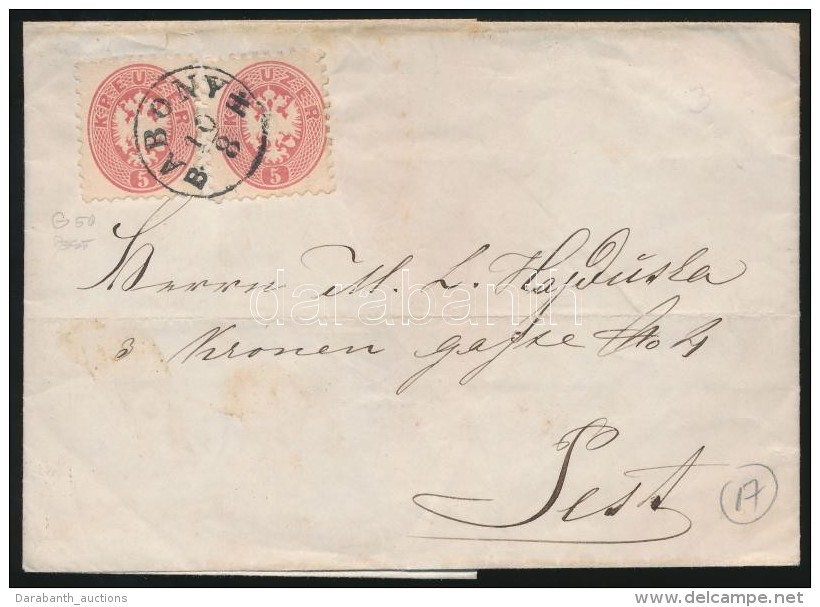 KREUZER
5
KREUZER
5
ABONY B. H.
10
8
G 50
Herrn M. L. Hajduska
3 Kronen gaße No 4
Pest
17
darabanth
Darabanth_auctions
delcampe.net